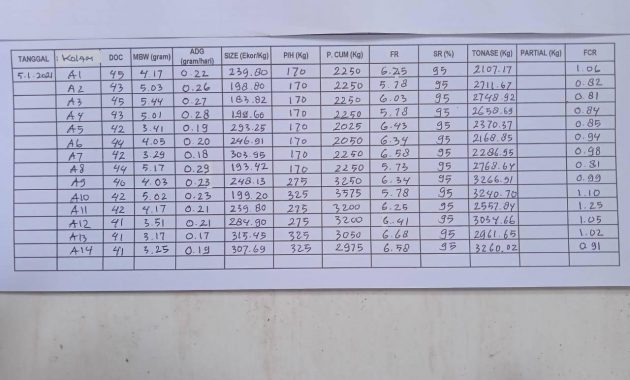 TANGGAL : Kolam DOC MBW (gram) ADG (gram/hari) SIZE (Ekor/Kg) P/H (Kg) P. CUM (Kg) FR SR (%) TONASE (Kg) PARTIAL (Kg) FCR
5.1.2021 A1 45 4.17 0.22 239.80 170 2250 6.25 95 2107.17 1.06
A2 43 5.03 0.26 198.80 170 2250 5.78 95 2711.67 0.82
A3 45 5.44 0.27 183.82 170 2250 6.03 95 2748.92 0.81
A4 43 5.01 0.28 199.60 170 2250 5.78 95 2658.69 0.84
A5 42 3.41 0.19 293.25 170 2025 6.43 95 2370.37 0.85
A6 44 4.05 0.20 246.91 170 2050 6.34 95 2168.85 0.94
A7 42 3.29 0.18 303.95 170 2250 6.58 95 2286.55 0.98
A8 44 5.17 0.29 193.42 170 2250 5.73 95 2768.64 0.81
A9 40 4.03 0.23 248.13 275 3250 6.34 95 3266.91 0.99
A10 42 5.02 0.23 199.20 325 3575 5.78 95 3240.70 1.10
A11 42 4.17 0.21 239.80 275 3200 6.25 95 2557.84 1.25
A12 41 3.51 0.21 284.90 275 3200 6.41 95 3034.66 1.05
A13 41 3.17 0.17 315.45 325 3050 6.68 95 2961.65 1.02
A14 41 3.25 0.19 307.69 325 2975 6.58 95 3260.02 0.91